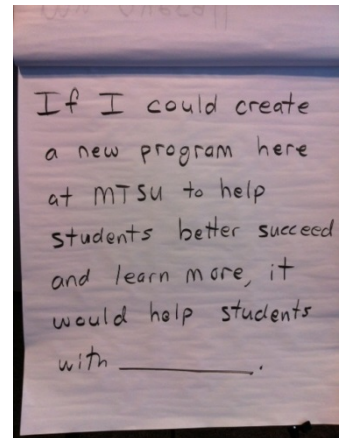 If I could create
a new program here
at MTSU to help
students better succeed
and learn more, it
would help students
with __________.